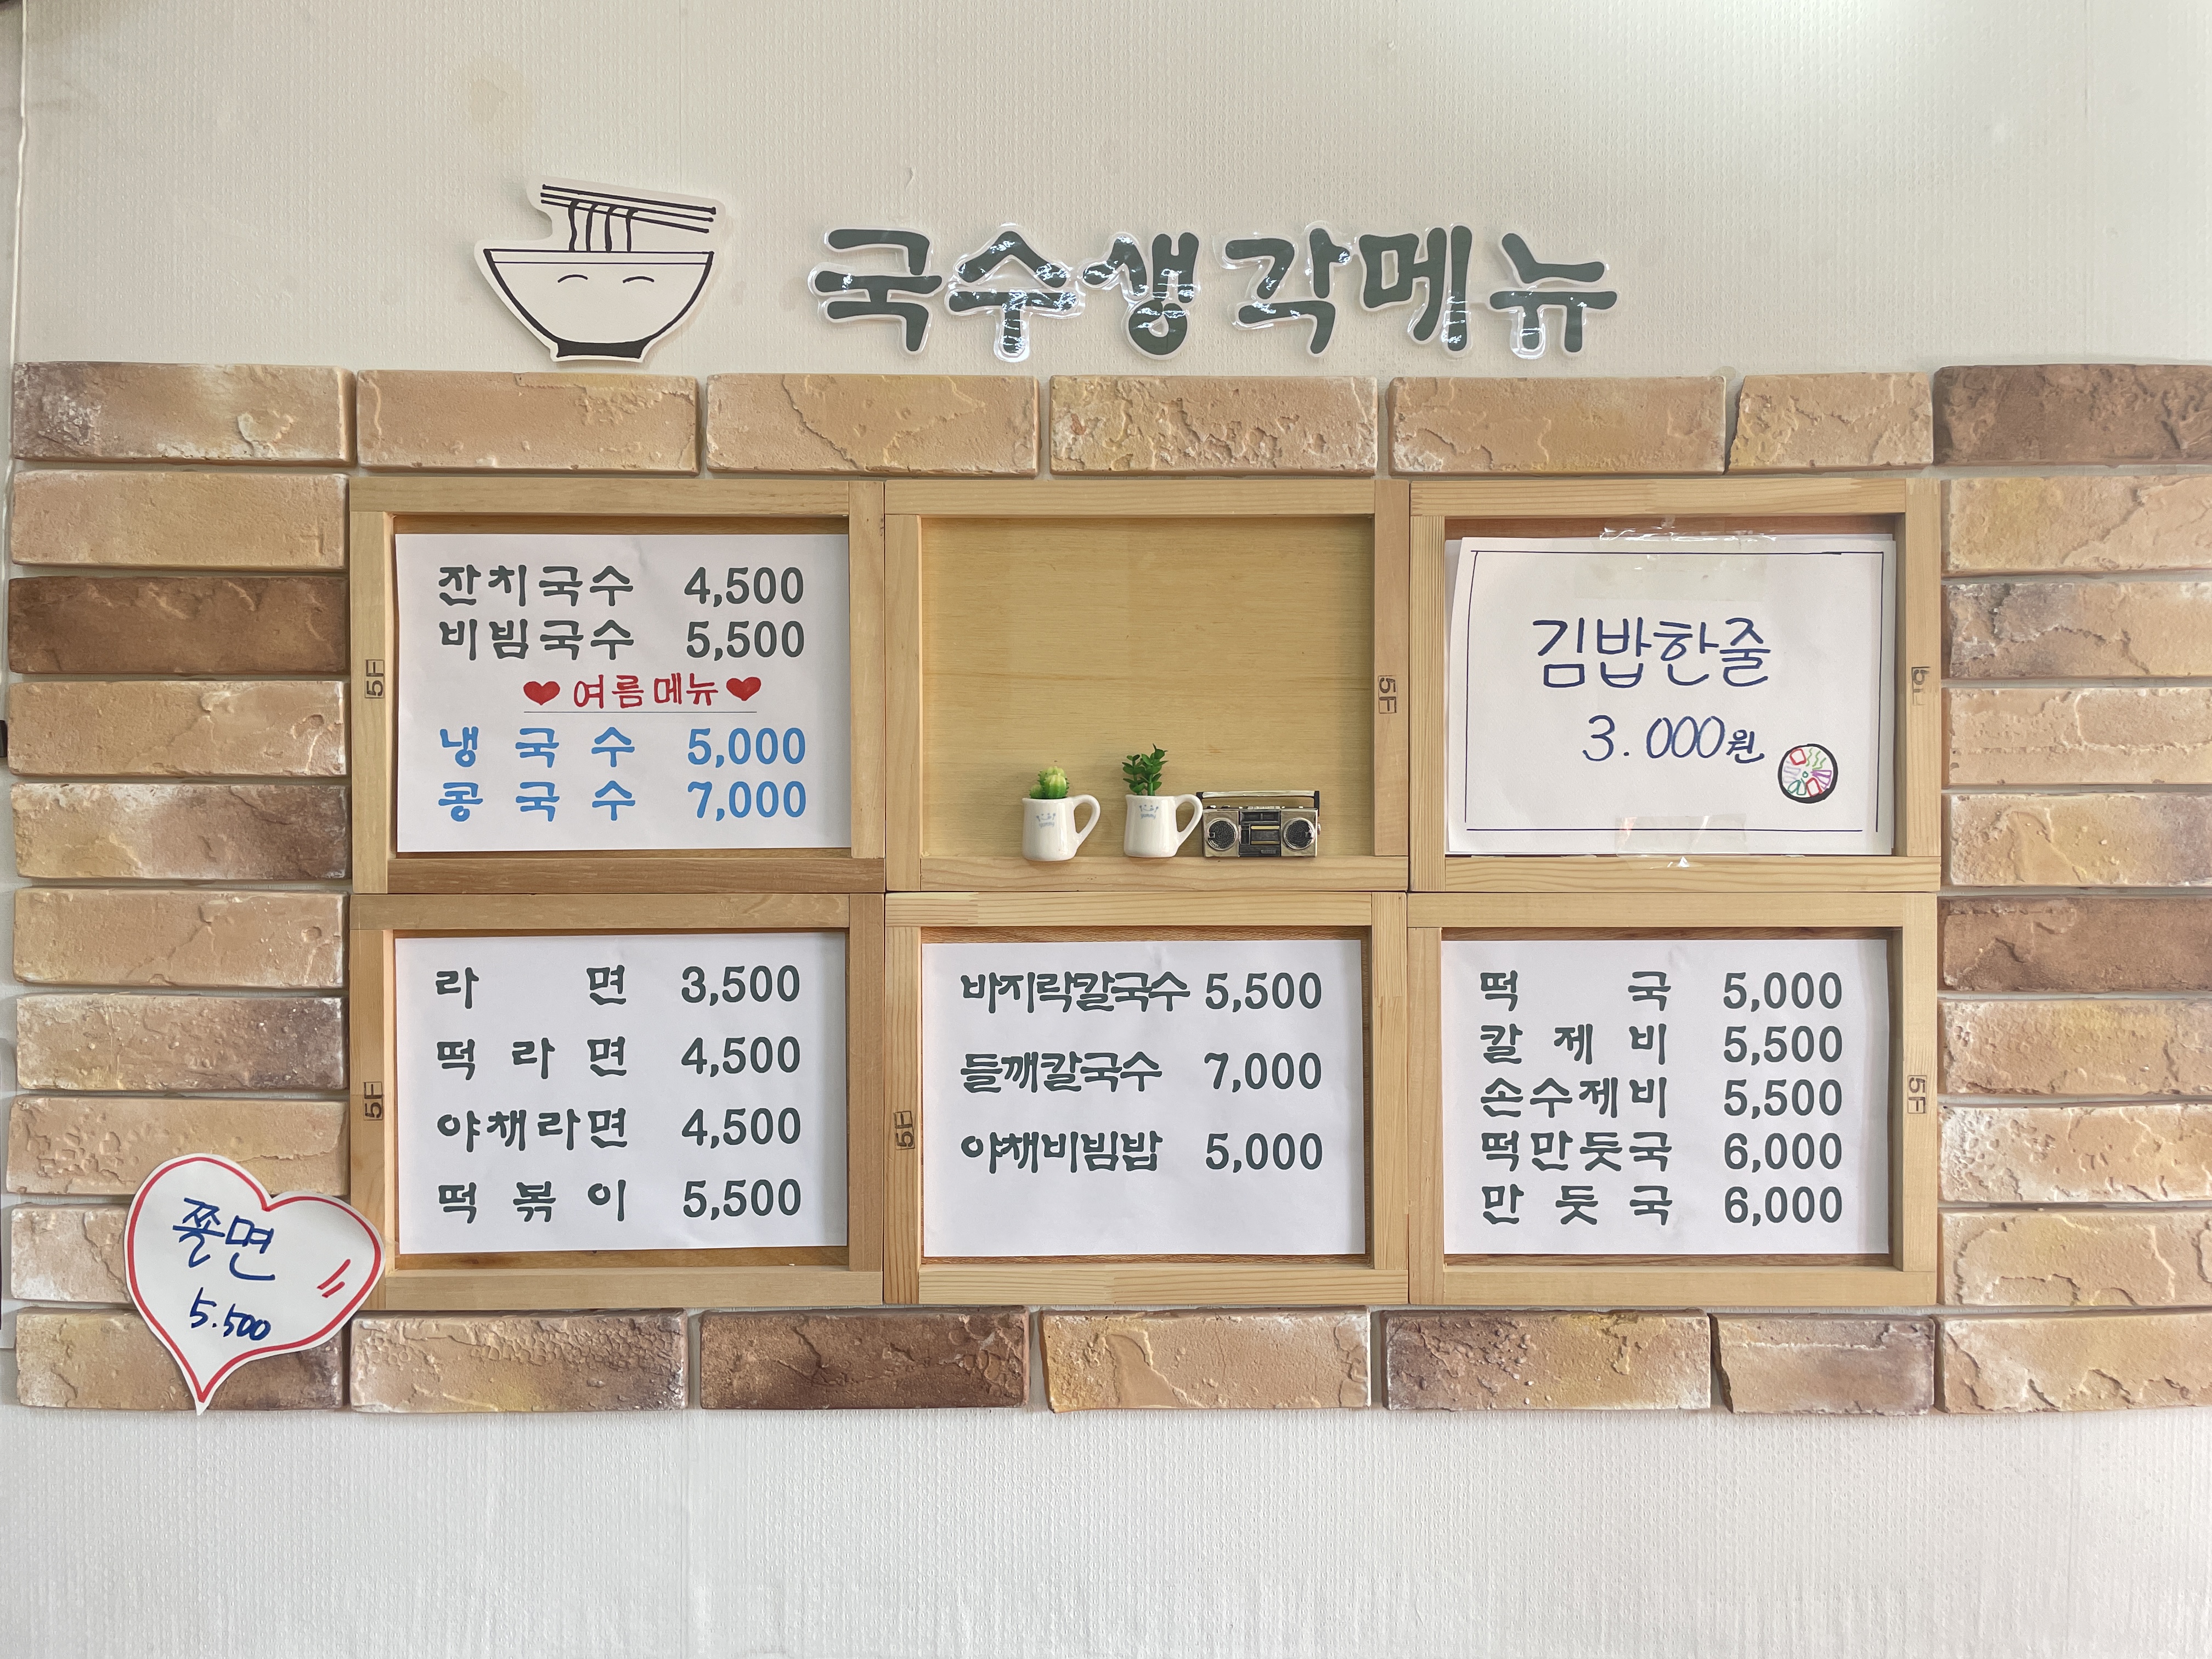 국수생각메뉴
잔치국수 4,500
비빔국수 5,500
❤ 여름메뉴 ❤
냉국수 5,000
콩국수 7,000
김밥한줄
3.000원
라면 3,500
떡라면 4,500
야채라면 4,500
떡볶이 5,500
바지락칼국수 5,500
들깨칼국수 7,000
야채비빔밥 5,000
떡국 5,000
칼제비 5,500
손수제비 5,500
떡만둣국 6,000
만둣국 6,000
쫄면
5.500
5F
5F
5F
5F
5F
5F